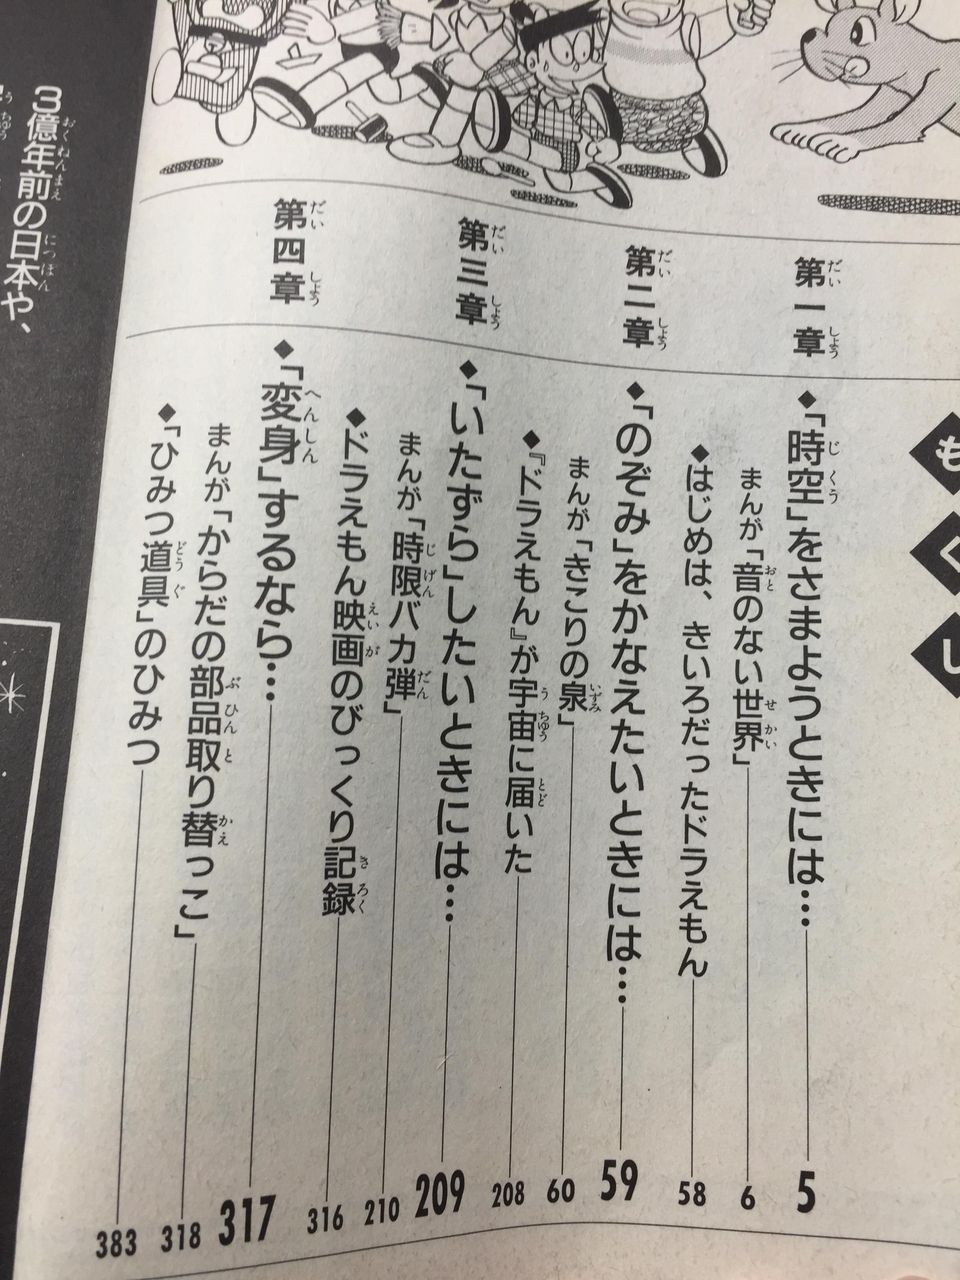 も
く
じ
第一章
◆「時空」をさまようときには… 5
まんが「音のない世界」 6
◆はじめは、きいろだったドラえもん 58
第二章
◆「のぞみ」をかなえたいときには… 59
まんが「きこりの泉」 60
◆『ドラえもん』が宇宙に届いた 208
第三章
◆「いたずら」したいときには… 209
まんが「時限バカ弾」 210
◆ドラえもん映画のびっくり記録 316
第四章
◆「変身」するなら… 317
まんが「からだの部品取り替っこ」 318
◆「ひみつ道具」のひみつ 383
3億年前の日本や、